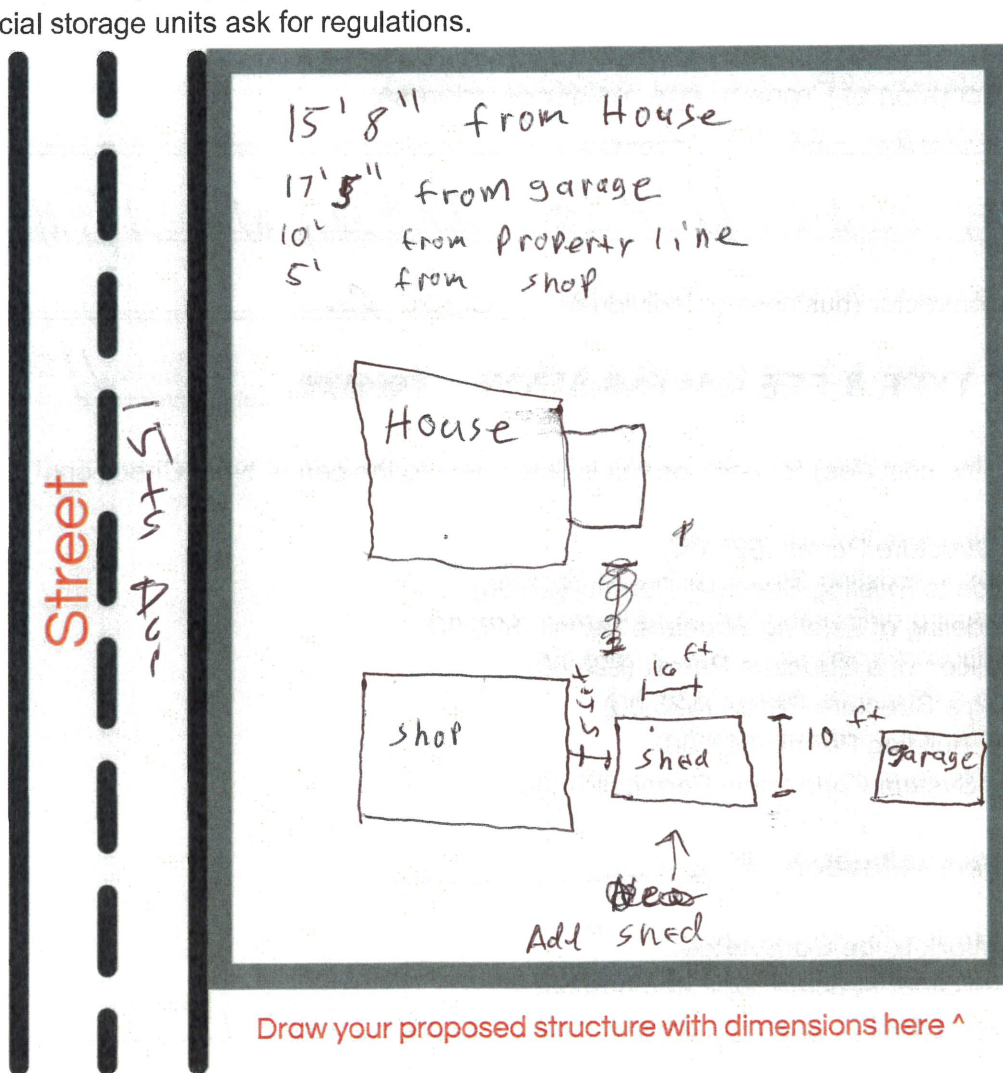 cial storage units ask for regulations.
15' 8" from House
17' 5" from garage
10' from Property line
5' from shop
House
Street
10 ft
5 feet
shop
shed
10 ft
garage
Add shed
Draw your proposed structure with dimensions here ^